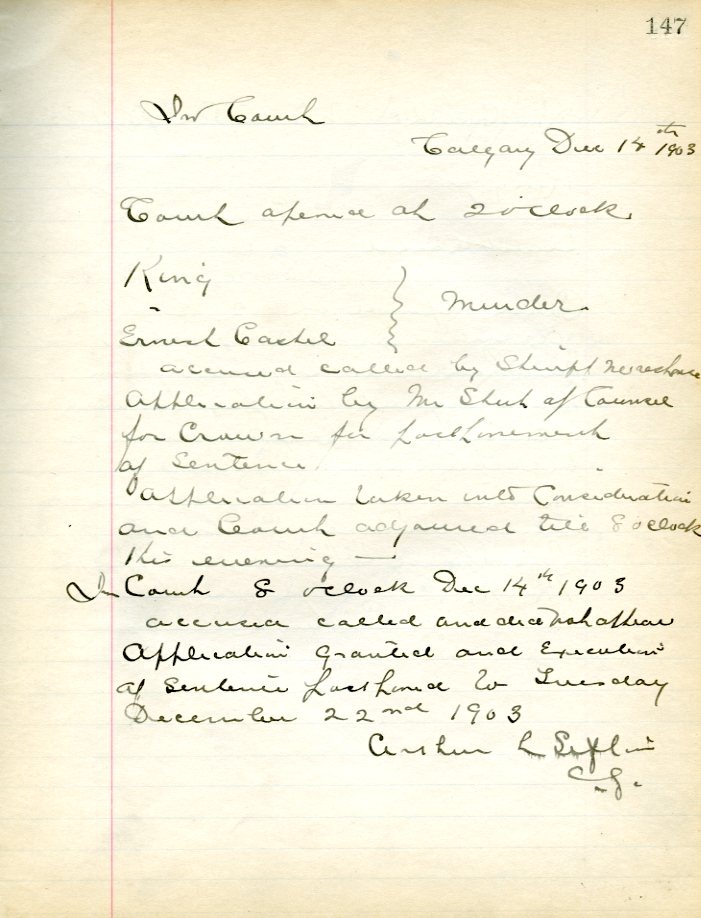 147
In Court
Calgary Dec 14th 1903
Court opened at 2 o'clock
King
"
Murder
Ernest Cashel
accused called by Sheriff
Application by Mr Short of Counsel
for Crown for postponement
of Sentence
Application taken into Consideration
and Court adjourned till 8 oclock
this evening —
In Court 8 oclock Dec 14th 1903
accused called and did not appear
Application granted and Execution
of Sentence postponed to Tuesday
December 22nd 1903
Arthur L Sifton
C.J.